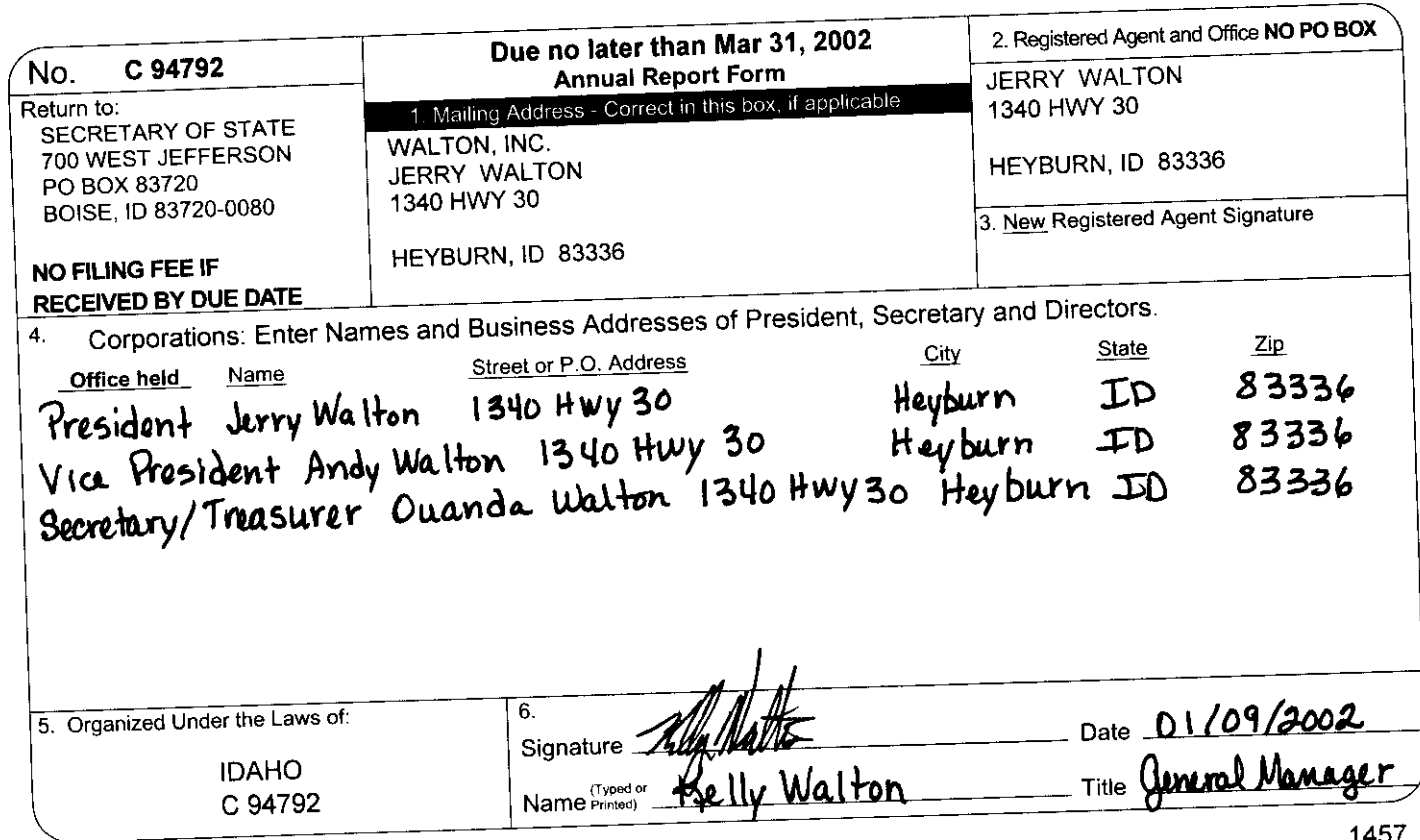 No. C 94792
Return to:
SECRETARY OF STATE
700 WEST JEFFERSON
PO BOX 83720
BOISE, ID 83720-0080
NO FILING FEE IF
RECEIVED BY DUE DATE
Due no later than Mar 31, 2002
Annual Report Form
1. Mailing Address - Correct in this box, if applicable
WALTON, INC.
JERRY WALTON
1340 HWY 30
HEYBURN, ID 83336
2. Registered Agent and Office NO PO BOX
JERRY WALTON
1340 HWY 30
HEYBURN, ID 83336
3. New Registered Agent Signature
4. Corporations: Enter Names and Business Addresses of President, Secretary and Directors.
Office held Name Street or P.O. Address City State Zip
President Jerry Walton 1340 Hwy 30 Heyburn ID 83336
Vice President Andy Walton 1340 Hwy 30 Heyburn ID 83336
Secretary/Treasurer Ouanda Walton 1340 Hwy 30 Heyburn ID 83336
5. Organized Under the Laws of:
IDAHO
C 94792
6.
Signature Kelly Walton
Date 01/09/2002
Name (Typed or Printed) Kelly Walton
Title General Manager
1457